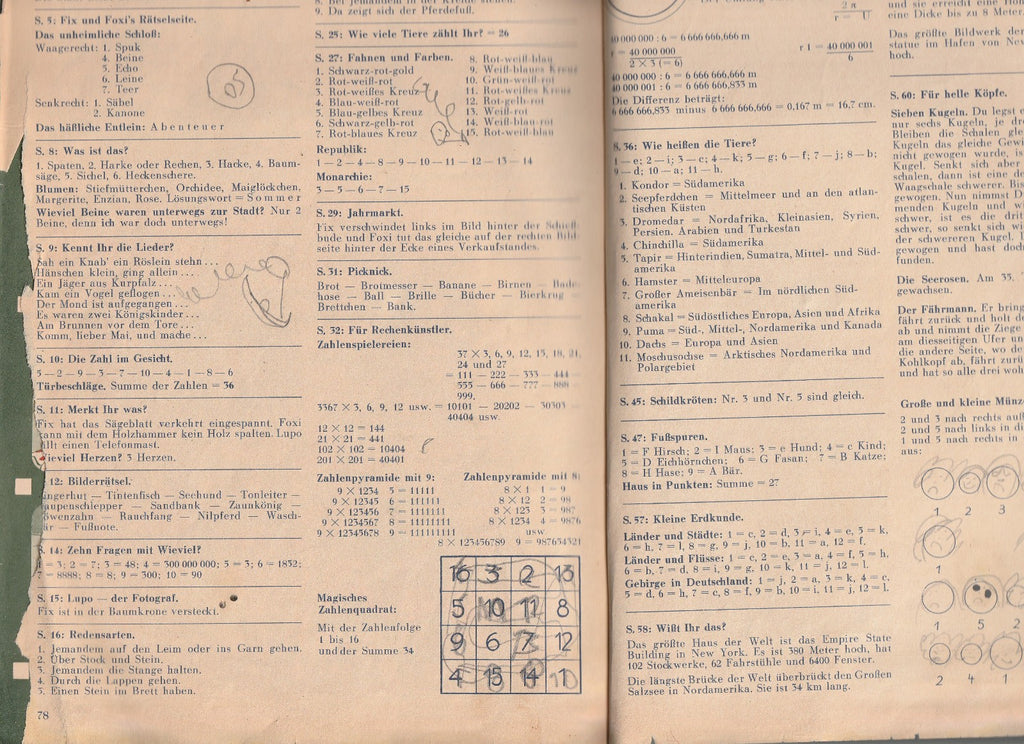 S. 5: Fix und Foxi's Rätselseite.
Das unheimliche Schloß:
Waagerecht: 1. Spuk
4. Beine
5. Echo
6. Leine
7. Teer
Senkrecht: 1. Säbel
2. Kanone
Das häßliche Entlein: Abenteuer
S. 8: Was ist das?
1. Spaten, 2. Harke oder Rechen, 3. Hacke, 4. Baum-
säge, 5. Sichel, 6. Heckenschere.
Blumen: Stiefmütterchen, Orchidee, Maiglöckchen,
Margerite, Enzian, Rose. Lösungswort = Sommer
Wieviel Beine waren unterwegs zur Stadt? Nur 2
Beine, denn ich war doch unterwegs!
S. 9: Kennt Ihr die Lieder?
Sah ein Knab' ein Röslein stehn ...
Hänschen klein, ging allein ...
Ein Jäger aus Kurpfalz ...
Kam ein Vogel geflogen ...
Der Mond ist aufgegangen ...
Es waren zwei Königskinder ...
Am Brunnen vor dem Tore ...
Komm, lieber Mai, und mache ...
S. 10: Die Zahl im Gesicht.
5 — 2 — 9 — 3 — 7 — 10 — 4 — 1 — 8 — 6
Türbeschläge. Summe der Zahlen = 36
S. 11: Merkt Ihr was?
Fix hat das Sägeblatt verkehrt eingespannt. Foxi
kann mit dem Holzhammer kein Holz spalten. Lupo
fällt einen Telefonmast.
Wieviel Herzen? 3 Herzen.
12: Bilderrätsel.
ingerhut — Tintenfisch — Seehund — Tonleiter —
aupenschlepper — Sandbank — Zaunkönig —
öwenzahn — Rauchfang — Nilpferd — Wasch-
är — Fußnote.
14: Zehn Fragen mit Wieviel?
= 3; 2 = 7; 3 = 48; 4 = 300 000 000; 5 = 3; 6 = 1832;
7 = 8888; 8 = 8; 9 = 300; 10 = 90
S. 15: Lupo — der Fotograf.
Fix ist in der Baumkrone versteckt.
S. 16: Redensarten.
1. Jemandem auf den Leim oder ins Garn gehen.
2. Über Stock und Stein.
3. Jemandem die Stange halten.
4. Durch die Lappen gehen.
5. Einen Stein im Brett haben.
78
9. Da zeigt sich der Pferdefuß.
S. 25: Wie viele Tiere zählt Ihr? = 26
S. 27: Fahnen und Farben.
1. Schwarz-rot-gold
2. Rot-weiß-rot
3. Rot-weißes Kreuz
4. Blau-weiß-rot
5. Blau-gelbes Kreuz
6. Schwarz-gelb-rot
7. Rot-blaues Kreuz
8. Rot-weiß-blau
9. Weiß-blaues Kreuz
10. Grün-weiß-rot
11. Rot-weißes Kreuz
12. Rot-gelb-rot
13. Weiß-rot
14. Weiß-blau-rot
15. Rot-weiß-blau
Republik:
1 — 2 — 4 — 8 — 9 — 10 — 11 — 12 — 13 — 14
Monarchie:
3 — 5 — 6 — 7 — 15
S. 29: Jahrmarkt.
Fix verschwindet links im Bild hinter der Schieß-
bude und Foxi tut das gleiche auf der rechten Bild-
seite hinter der Ecke eines Verkaufstandes.
S. 31: Picknick.
Brot — Brotmesser — Banane — Birnen — Bade-
hose — Ball — Brille — Bücher — Bierkrug —
Brettchen — Bank.
S. 32: Für Rechenkünstler.
Zahlenspielereien:
37 × 3, 6, 9, 12, 15, 18, 21,
24 und 27
= 111 — 222 — 333 — 444 —
555 — 666 — 777 — 888 —
999.
3367 × 3, 6, 9, 12 usw. = 10101 — 20202 — 30303 —
40404 usw.
12 × 12 = 144
21 × 21 = 441
102 × 102 = 10404
201 × 201 = 40401
Zahlenpyramide mit 9:
9 × 1234 5 = 11111
9 × 12345 6 = 111111
9 × 123456 7 = 1111111
9 × 1234567 8 = 11111111
9 × 12345678 9 = 111111111
Zahlenpyramide mit 8:
8 × 1 1 = 9
8 × 12 2 = 98
8 × 123 3 = 987
8 × 1234 4 = 9876
usw
8 × 123456789 9 = 987654321
Magisches
Zahlenquadrat:
Mit der Zahlenfolge
1 bis 16
und der Summe 34
16 3 2 13
5 10 11 8
9 6 7 12
4 15 14 1
2 π
r = U
40 000 000 : 6 = 6 666 666,666 m
r = 40 000 000
2 × 3 (= 6)
r 1 = 40 000 001
6
40 000 000 : 6 = 6 666 666,666 m
40 000 001 : 6 = 6 666 666,833 m
Die Differenz beträgt:
6 666 666,833 minus 6 666 666,666 = 0,167 m = 16,7 cm.
S. 36: Wie heißen die Tiere?
1 — e; 2 — i; 3 — c; 4 — k; 5 — g; 6 — f; 7 — j; 8 — b;
9 — d; 10 — a; 11 — h.
1. Kondor = Südamerika
2. Seepferdchen = Mittelmeer und an den atlan-
tischen Küsten
3. Dromedar = Nordafrika, Kleinasien, Syrien,
Persien, Arabien und Turkestan
4. Chinchilla = Südamerika
5. Tapir = Hinterindien, Sumatra, Mittel- und Süd-
amerika
6. Hamster = Mitteleuropa
7. Großer Ameisenbär = Im nördlichen Süd-
amerika
8. Schakal = Südöstliches Europa, Asien und Afrika
9. Puma = Süd-, Mittel-, Nordamerika und Kanada
10. Dachs = Europa und Asien
11. Moschusochse = Arktisches Nordamerika und
Polargebiet
S. 45: Schildkröten: Nr. 3 und Nr. 5 sind gleich.
S. 47: Fußspuren.
1 = F Hirsch; 2 = I Maus; 3 = e Hund; 4 = c Kind;
5 = D Eichhörnchen; 6 = G Fasan; 7 = B Katze;
8 = H Hase; 9 = A Bär.
Haus in Punkten: Summe = 27
S. 57: Kleine Erdkunde.
Länder und Städte: 1 = c, 2 = d, 3 = i, 4 = e, 5 = k,
6 = h, 7 = l, 8 = g, 9 = j, 10 = b, 11 = a, 12 = f.
Länder und Flüsse: 1 = c, 2 = e, 3 = a, 4 = f, 5 = h,
6 = b, 7 = d, 8 = i, 9 = g, 10 = k, 11 = j, 12 = l.
Gebirge in Deutschland: 1 = j, 2 = a, 3 = k, 4 = e,
5 = d, 6 = h, 7 = c, 8 = f, 9 = b, 10 = i, 11 = g, 12 = l.
S. 58: Wißt Ihr das?
Das größte Haus der Welt ist das Empire State
Building in New York. Es ist 380 Meter hoch, hat
102 Stockwerke, 62 Fahrstühle und 6400 Fenster.
Die längste Brücke der Welt überbrückt den Großen
Salzsee in Nordamerika. Sie ist 34 km lang.
und sie erreicht eine
eine Dicke bis zu 8 Meter
Das größte Bildwerk der
statue im Hafen von New
hoch.
S. 60: Für helle Köpfe.
Sieben Kugeln. Du legst
nur sechs Kugeln, je dre
Bleiben die Schalen gle
Kugeln das gleiche Gewi
nicht gewogen wurde, is
Kugel. Senkt sich aber
schalen, dann ist eine de
Waagschale schwerer. Bis
gewogen. Nun nimmst D
menden Kugeln und w
schwer, so ist es die drit
schwer, so senkt sich wi
der schwereren Kugel.
gewogen und hast doch
funden.
Die Seerosen. Am 35.
gewachsen.
Der Fährmann. Er bring
fährt zurück und holt d
ab und nimmt die Ziege
am diesseitigen Ufer un
die andere Seite, wo de
Kohlkopf ab, fährt zurü
und hat so alle drei wohl
Große und kleine Münz
2 und 3 nach rechts auf
2 und 5 nach links in di
1 und 3 nach rechts in
aus:
1 2 3
1
1 5 2
2 4 1